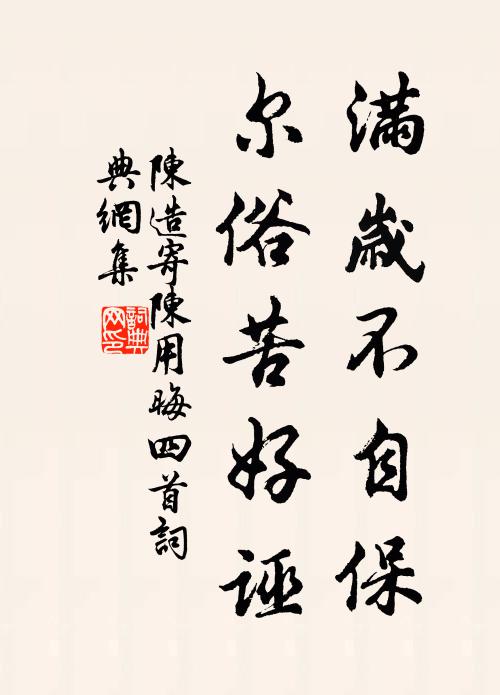 滿歲不自保
尔俗苦好誣
陳造寄陳用晦四首詞
典網集
詞典网印